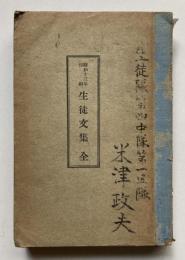 生徒隊第四中隊第一区隊
米津政夫
昭和十三年
生徒文集 全